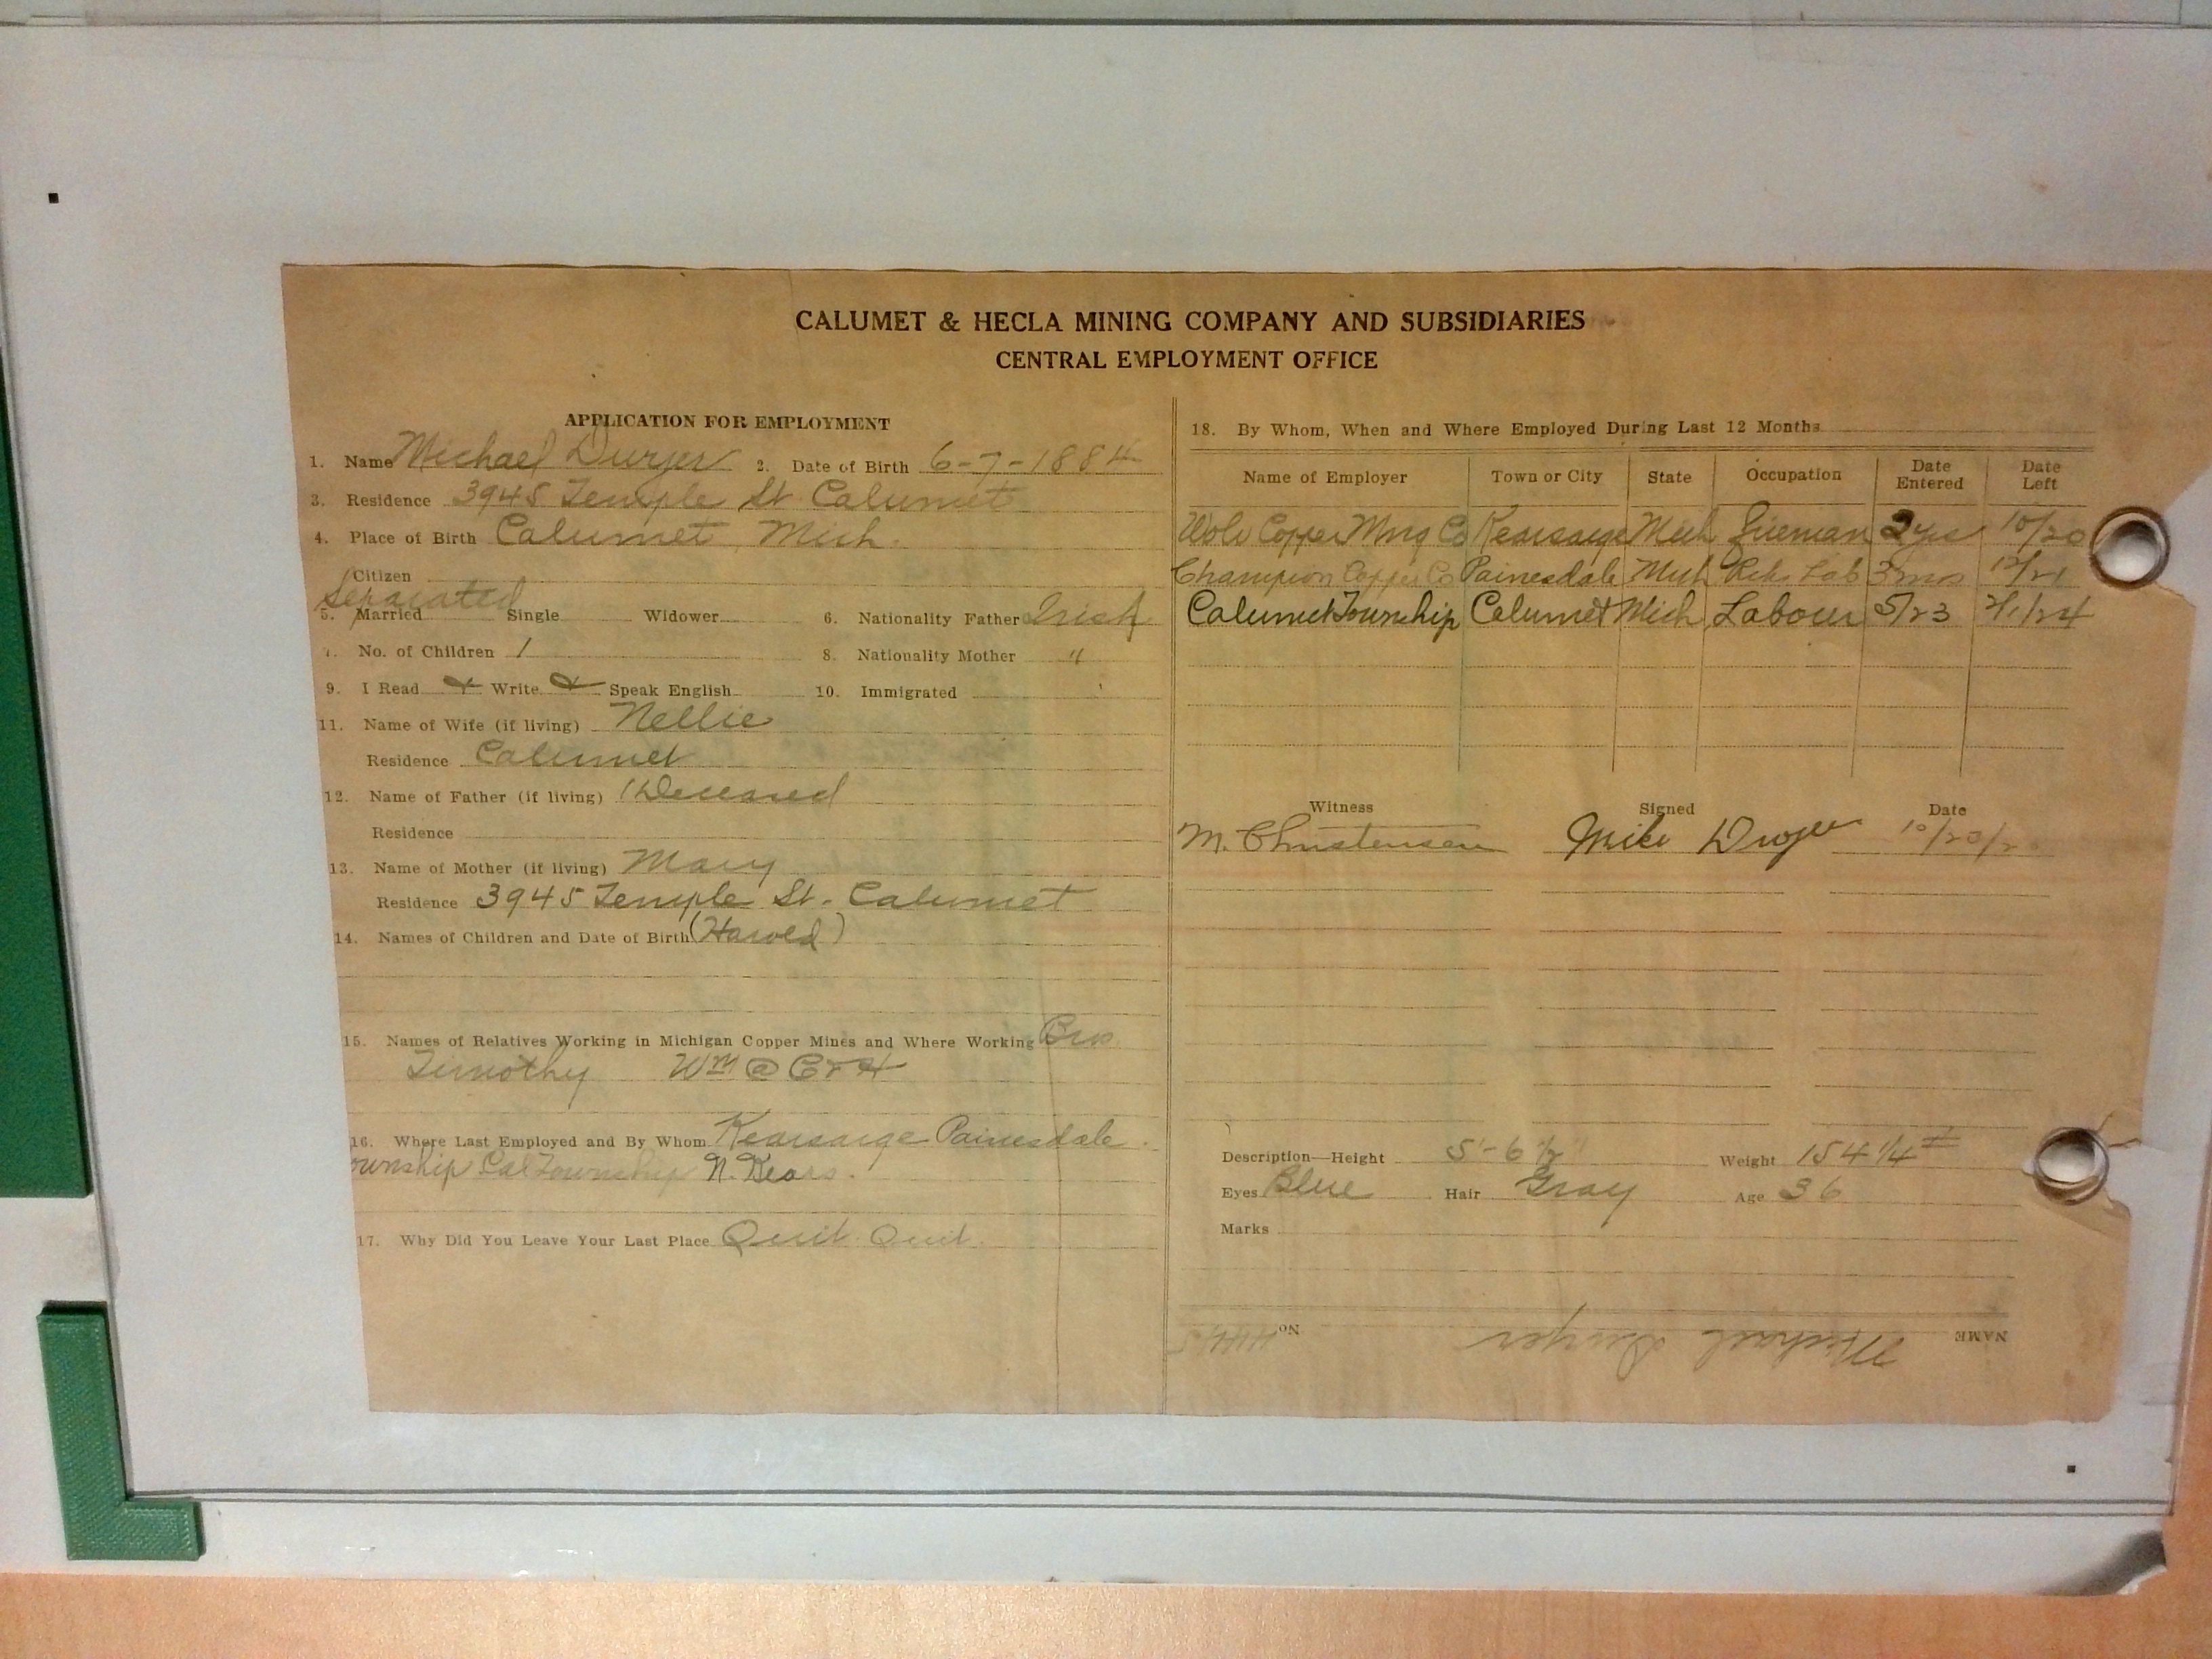 CALUMET & HECLA MINING COMPANY AND SUBSIDIARIES
CENTRAL EMPLOYMENT OFFICE
APPLICATION FOR EMPLOYMENT
1. Name Michael Dwyer 2. Date of Birth 6-7-1884
3. Residence 3945 Temple St. Calumet
4. Place of Birth Calumet, Mich.
Citizen
Separated
5. Married Single Widower 6. Nationality Father Irish
7. No. of Children 1 8. Nationality Mother "
9. I Read Write Speak English 10. Immigrated
11. Name of Wife (if living) Nellie
Residence Calumet
12. Name of Father (if living) Deceased
Residence
13. Name of Mother (if living) Mary
Residence 3945 Temple St. Calumet
14. Names of Children and Date of Birth (Harold)
15. Names of Relatives Working in Michigan Copper Mines and Where Working Bros
Timothy Wm @ C & H
16. Where Last Employed and By Whom Kearsarge Painesdale
ownship Cal Township N. Kears.
17. Why Did You Leave Your Last Place Quit. Quit.
18. By Whom, When and Where Employed During Last 12 Months
Name of Employer Town or City State Occupation Date Entered Date Left
Copper Mng Co Kearsarge Mich Fireman 2 yrs 10/20
Champion Copper Co Painesdale Mich Lab 3 mos 12/21
Calumet Township Calumet Mich Labour 5/23 2/1/24
Witness Signed Date
M. Christensen Mike Dwyer 10/20/20
Description—Height 5'-6 1/2" Weight 154 1/4 #
Eyes Blue Hair Gray Age 36
Marks
NAME Michael Dwyer No.